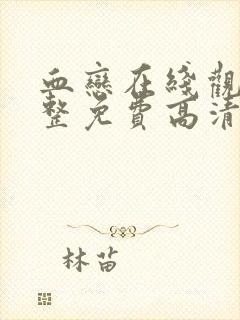 血戀在綫觀
整免費高清
林苗